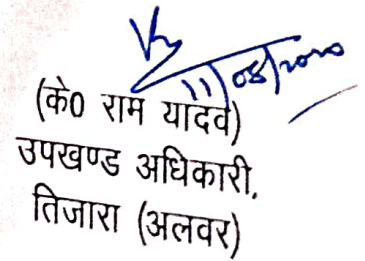 11/08/2020
(के0 राम यादव)
उपखण्ड अधिकारी,
तिजारा (अलवर)